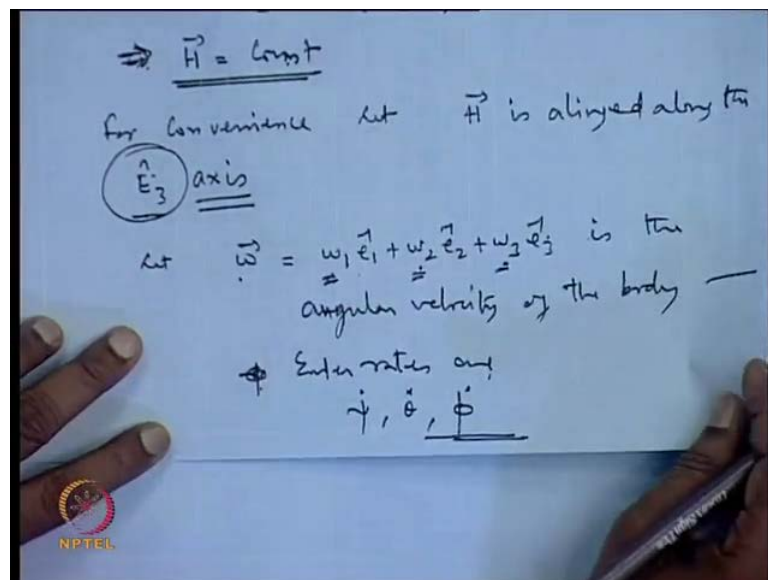 ⇒ H⃗ = Const
for convenience let H⃗ is alinged along the
Ê₃ axis
Let ω⃗ = ω₁e⃗₁ + ω₂e⃗₂ + ω₃e⃗₃ is the
angular velocity of the body —
Euler rates are
ψ̇, θ̇, ϕ̇
NPTEL